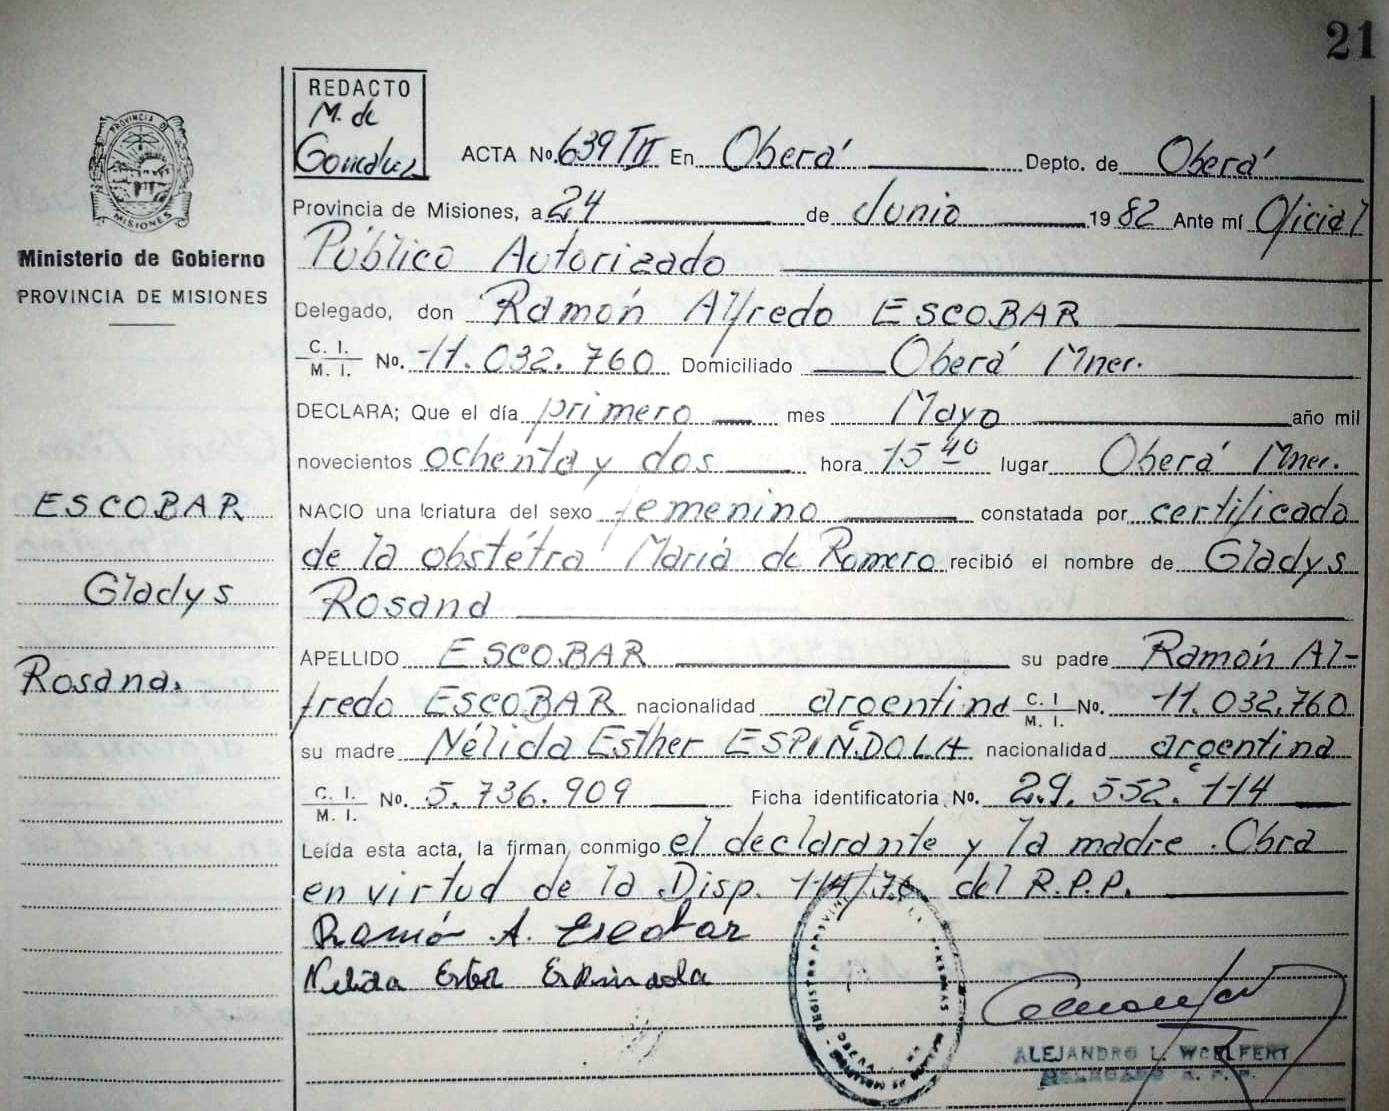 21
REDACTO
M. de
Gonzalez
PROVINCIA DE
MISIONES
Ministerio de Gobierno
PROVINCIA DE MISIONES
ESCOBAR
Gladys
Rosana.
ACTA No. 639 TII En Oberá Depto. de Oberá
Provincia de Misiones, a 24 de Junio 1982 Ante mí Oficial
Público Autorizado
Delegado, don Ramón Alfredo ESCOBAR
C. I. / M. I. No. 11.032.760 Domiciliado Oberá Mnes.
DECLARA; Que el día primero mes Mayo año mil
novecientos ochenta y dos hora 15 40 lugar Oberá Mnes.
NACIO una criatura del sexo femenino constatada por certificado
de la obstétra María de Romero recibió el nombre de Gladys
Rosana
APELLIDO ESCOBAR su padre Ramón Al-
fredo ESCOBAR nacionalidad argentina C. I / M. I. No. 11.032.760
su madre Nélida Esther ESPIÑDOLA nacionalidad argentina
C. I. / M. I. No. 5.736.909 Ficha identificatoria No. 29.552.114
Leída esta acta, la firman conmigo el declarante y la madre. Obra
en virtud de la Disp. 114/76 del R.P.P.
Ramón A. Escobar
Nelida Ester Espindola
ALEJANDRO L. WOELFERT
DELEGADO R. P. P.